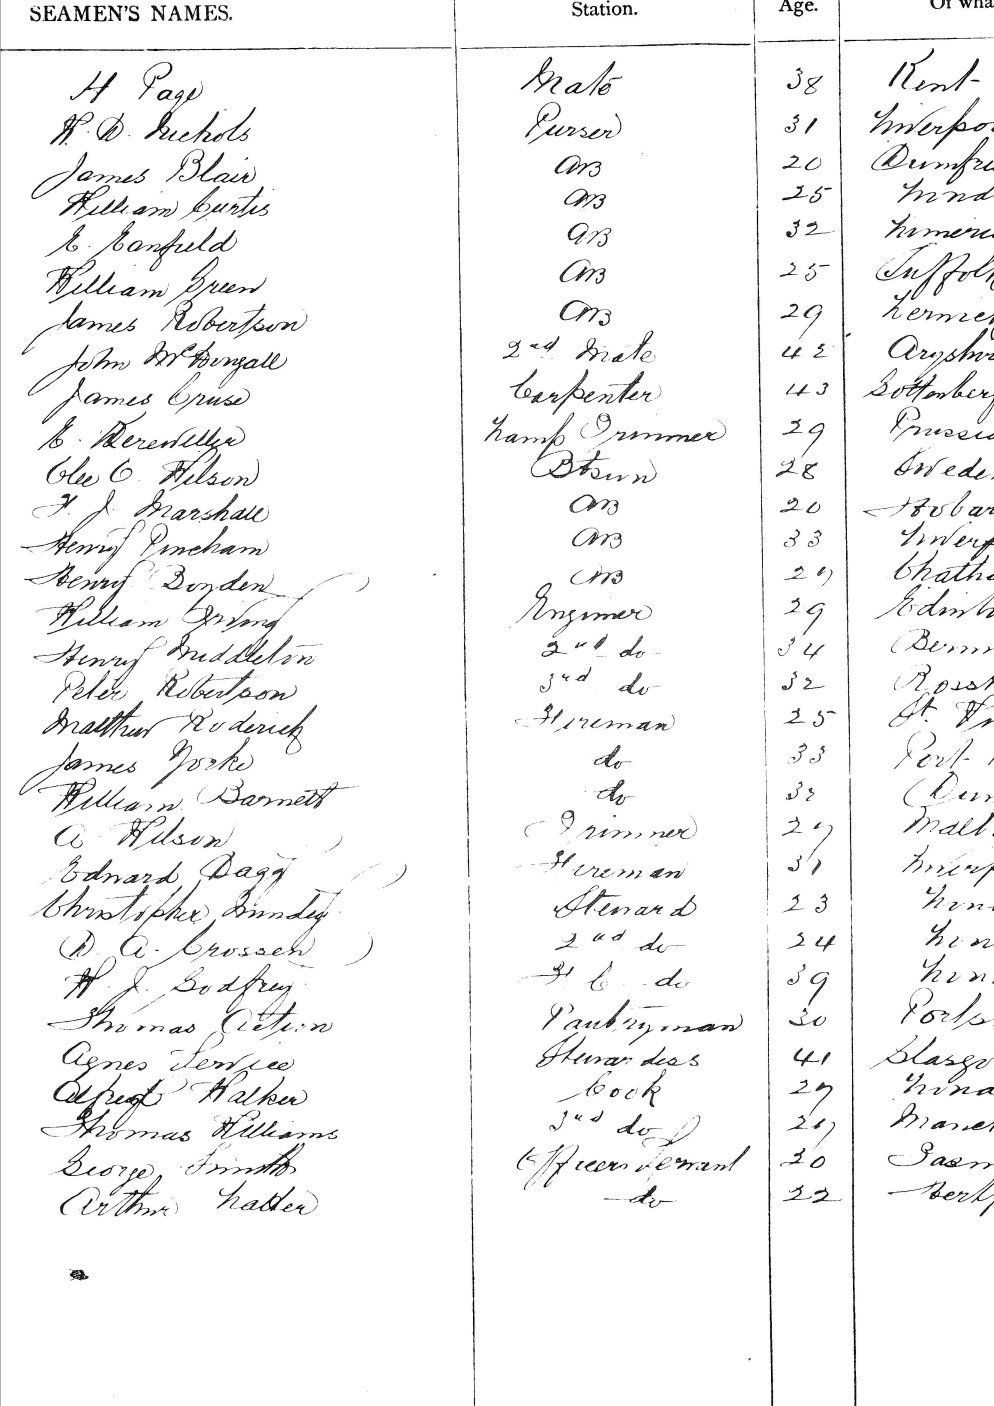 SEAMEN'S NAMES. Station. Age. Of wha
H Page Mate 38 Kent
W. D. Nichols Purser 31 Liverpo
James Blair AB 20 Dumfri
William Curtis AB 25 Lond
E. Canfield AB 32 Limeri
William Green AB 25 Suffolk
James Robertson AB 29
John McDougall 2nd Mate 42 Argyshir
James Cruse Carpenter 43 Gottenberg
E. Lamp Trimmer 29 Prussia
Olee O. Wilson Btswn 28 Swede
F. J. Marshall AB 20 Hobar
Henry Pincham AB 33 Liverp
Henry Boyden AB 27 Chath
William Irving Engineer 29 Edinb
Henry Middleton 2nd do 34
Peter Robertson 3rd do 32 Ross
Matthew Roderick Fireman 25 St. Vi
James Yorke do 33 Port
William Barnett do 32 Dun
A Wilson Trimmer 27 Malt
Edward Dagg Fireman 31 Liverp
Christopher Steward 23 Lon
D. A. Crossen 2nd do 24 Lon
W. J. Godfrey F C do 39 Lon
Thomas Pantryman 30 Ports
Agnes Service Stewardess 41 Glasgo
Alfred Walker Cook 27 Lond
Thomas Williams 3rd do 27 Manch
George Smith Officers Servant 30 Tasm
Arthur Latter do 22 Berk